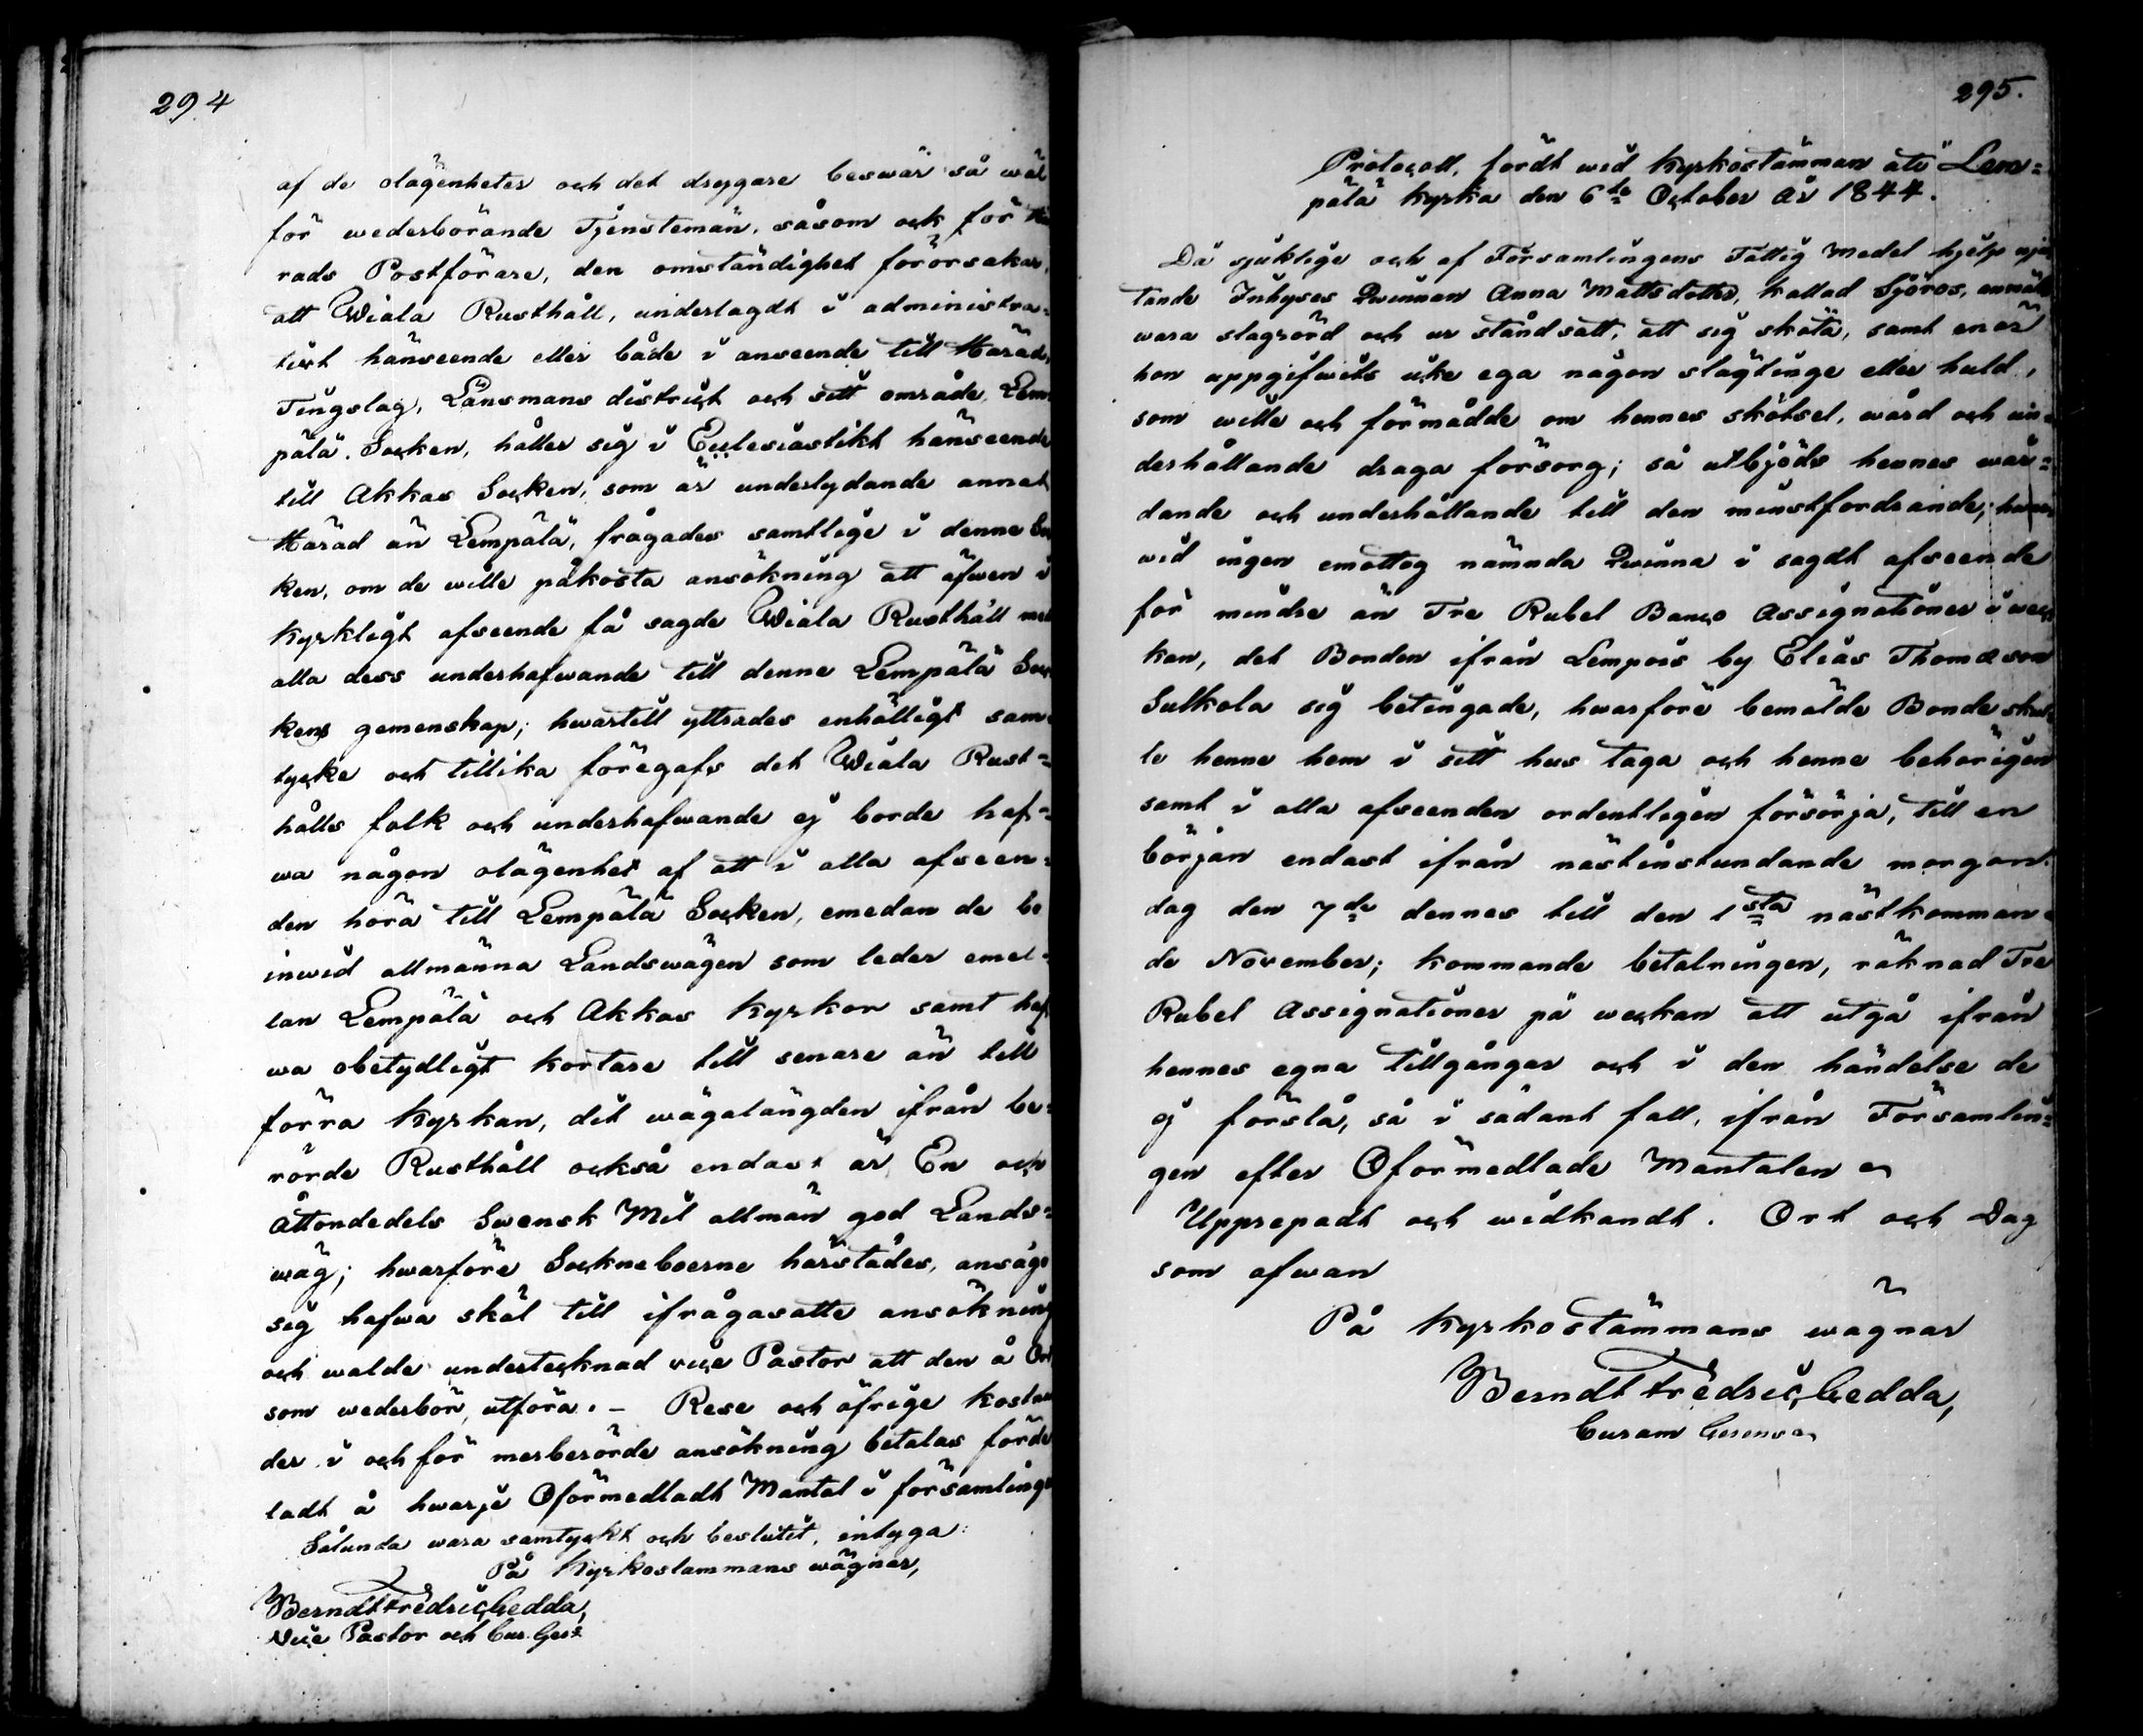 294
af de olägenheter och det drygare beswär så wäl
för wederbörande Tjenstemän, såsom ock för Hä
rads Postförare, den omständighet förorsakar,
att Wiala Rusthåll, underlagdt i administra-
tift hänseende eller både i anseende till Härad,
Tingslag, Länsmans district och sitt område Lem
pälä Socken, håller sig i Ecclesiastikt hänseende
till Akkas Socken, som är underlydande annat
Härad än Lempälä, frågades samtlige i denne Soc
ken, om de wille påkosta ansökning att äfwen i
kyrkligt afseende få sagde Wiala Rusthåll med
alla dess underhafwande till denne Lempälä Soc
kens gemenskap; hwartill yttrades enhälligt sam
tycke och tillika föregafs det Wiala Rust-
hålls folk och underhafwande ej borde haf-
wa någon olägenhet af att i alla afseen-
den höra till Lempälä Socken, emedan de bo
inwid allmänna Landswägen som leder emel-
lan Lempälä och Akkas Kyrkor samt haf
wa obetydligt kortare till senare än till
förra Kyrkan, dit wägalängden ifrån be-
rörde Rusthåll också endast är En och
Åttondedels Swensk Mil allmän god Lands-
wäg; hwarföre Sockneboerne härstädes, ansågo
sig hafwa skäl till ifrågasatte ansökning
och walde undertecknad vice Pastor att den å Ort
som wederbör, utföra. - Rese och öfrige kostna
der i och för merberörde ansökning betalas förde
ladt å hwarje Oförmedladt Mantal i församlinge
Sålunda wara samtyckt och beslutit, intyga:
På Kyrkostämmans wägnar,
Berndt Fredric Gedda,
Vice Pastor och Cur. Ger:s
295.
Protocoll, fördt wid Kyrkostämman uti Lem-
pälä Kyrka den 6te October År 1844.
Då sjuklige och af Församlingens Fattig Medel hjelp nju
tande Inhyses Qwinnan Anna Mattsdotter, kallad Sjöros, anmält
wara slagrörd och ur ståndsatt, att sig sköta, samt enär
hon uppgifwits icke ega någon slägtinge eller huld,
som wille och förmådde om hennes skötsel, wård och un-
derhållande draga försorg; så utbjöds hennes wår-
dande och underhållande till den minstfordrande; hwar
wid ingen emottog nämnda Qwinna i sagdt afseende
för mindre än Tre Rubel Banco Assignationer i wec
kan, det Bonden ifrån Lempois by Elias Thomasson
Sulkola sig betingade, hwarföre bemälde Bonde skul
le henne hem i sitt hus taga och henne behörigen
samt i alla afseenden ordentligen försörja, till en
början endast ifrån nästinstundande morgon-
dag den 7de dennes till den 1sta nästkomman-
de November; kommande betalningen, räknad Tre
Rubel Assignationer på weckan att utgå ifrån
hennes egna tillgångar och i den händelse de
ej förslå, så i sådant fall, ifrån Församlin-
gen efter Oförmedlade Mantalen
Upprepadt och widkändt. Ort och Dag
som ofwan
På Kyrkostämmans wägnar
Berndt Fredric Gedda,
Curam Gerens